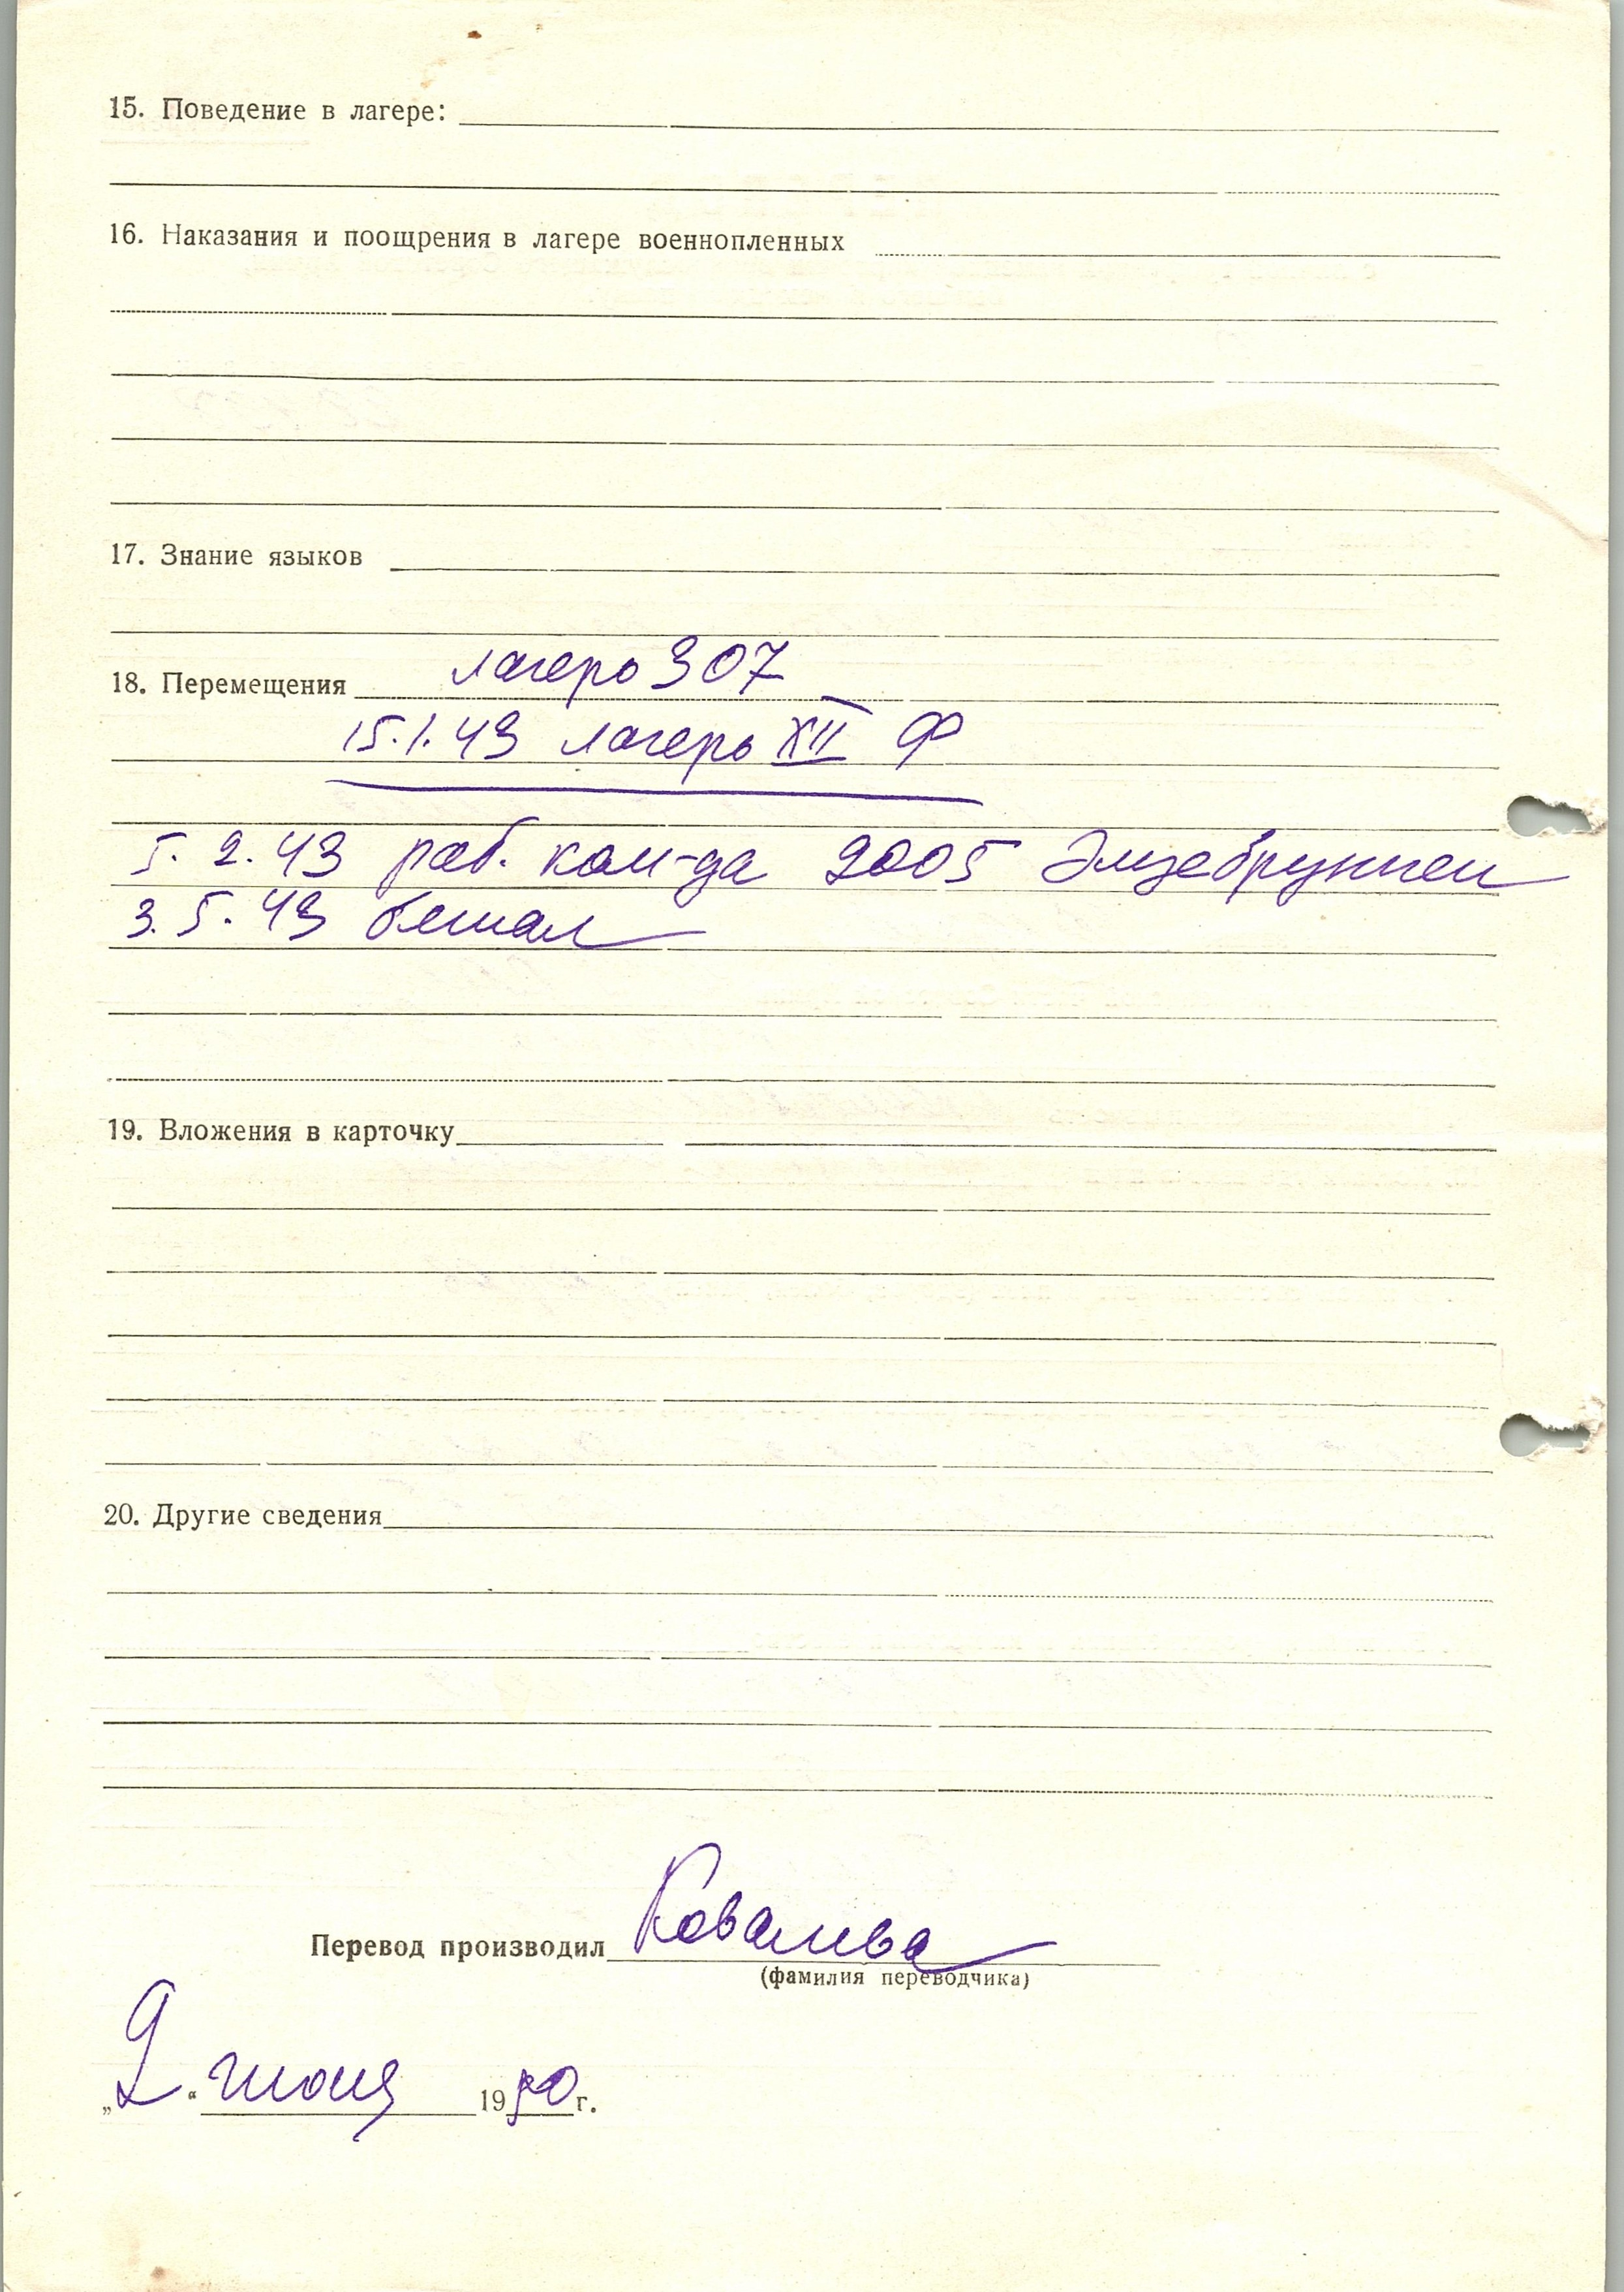 15. Поведение в лагере:
16. Наказания и поощрения в лагере военнопленных
17. Знание языков
18. Перемещения лагерь 307
15.1.43 лагерь XII Ф
5.2.43 раб. ком-да 2005
3.5.43 бежал
19. Вложения в карточку
20. Другие сведения
Перевод производил Ковалева
(фамилия переводчика)
„2“ июня 1950 г.